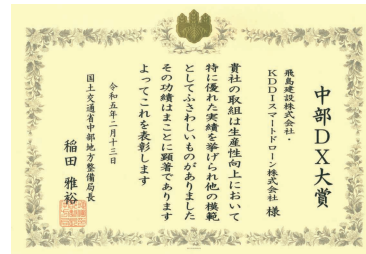 中部DX大賞
飛島建設株式会社・
KDDIスマートドローン株式会社 様
貴社の取組は生産性向上において
特に優れた実績を挙げられ他の模範
としてふさわしいものがありました
その功績はまことに顕著であります
よってこれを表彰します
令和五年二月十三日
国土交通省中部地方整備局長
稲田 雅裕